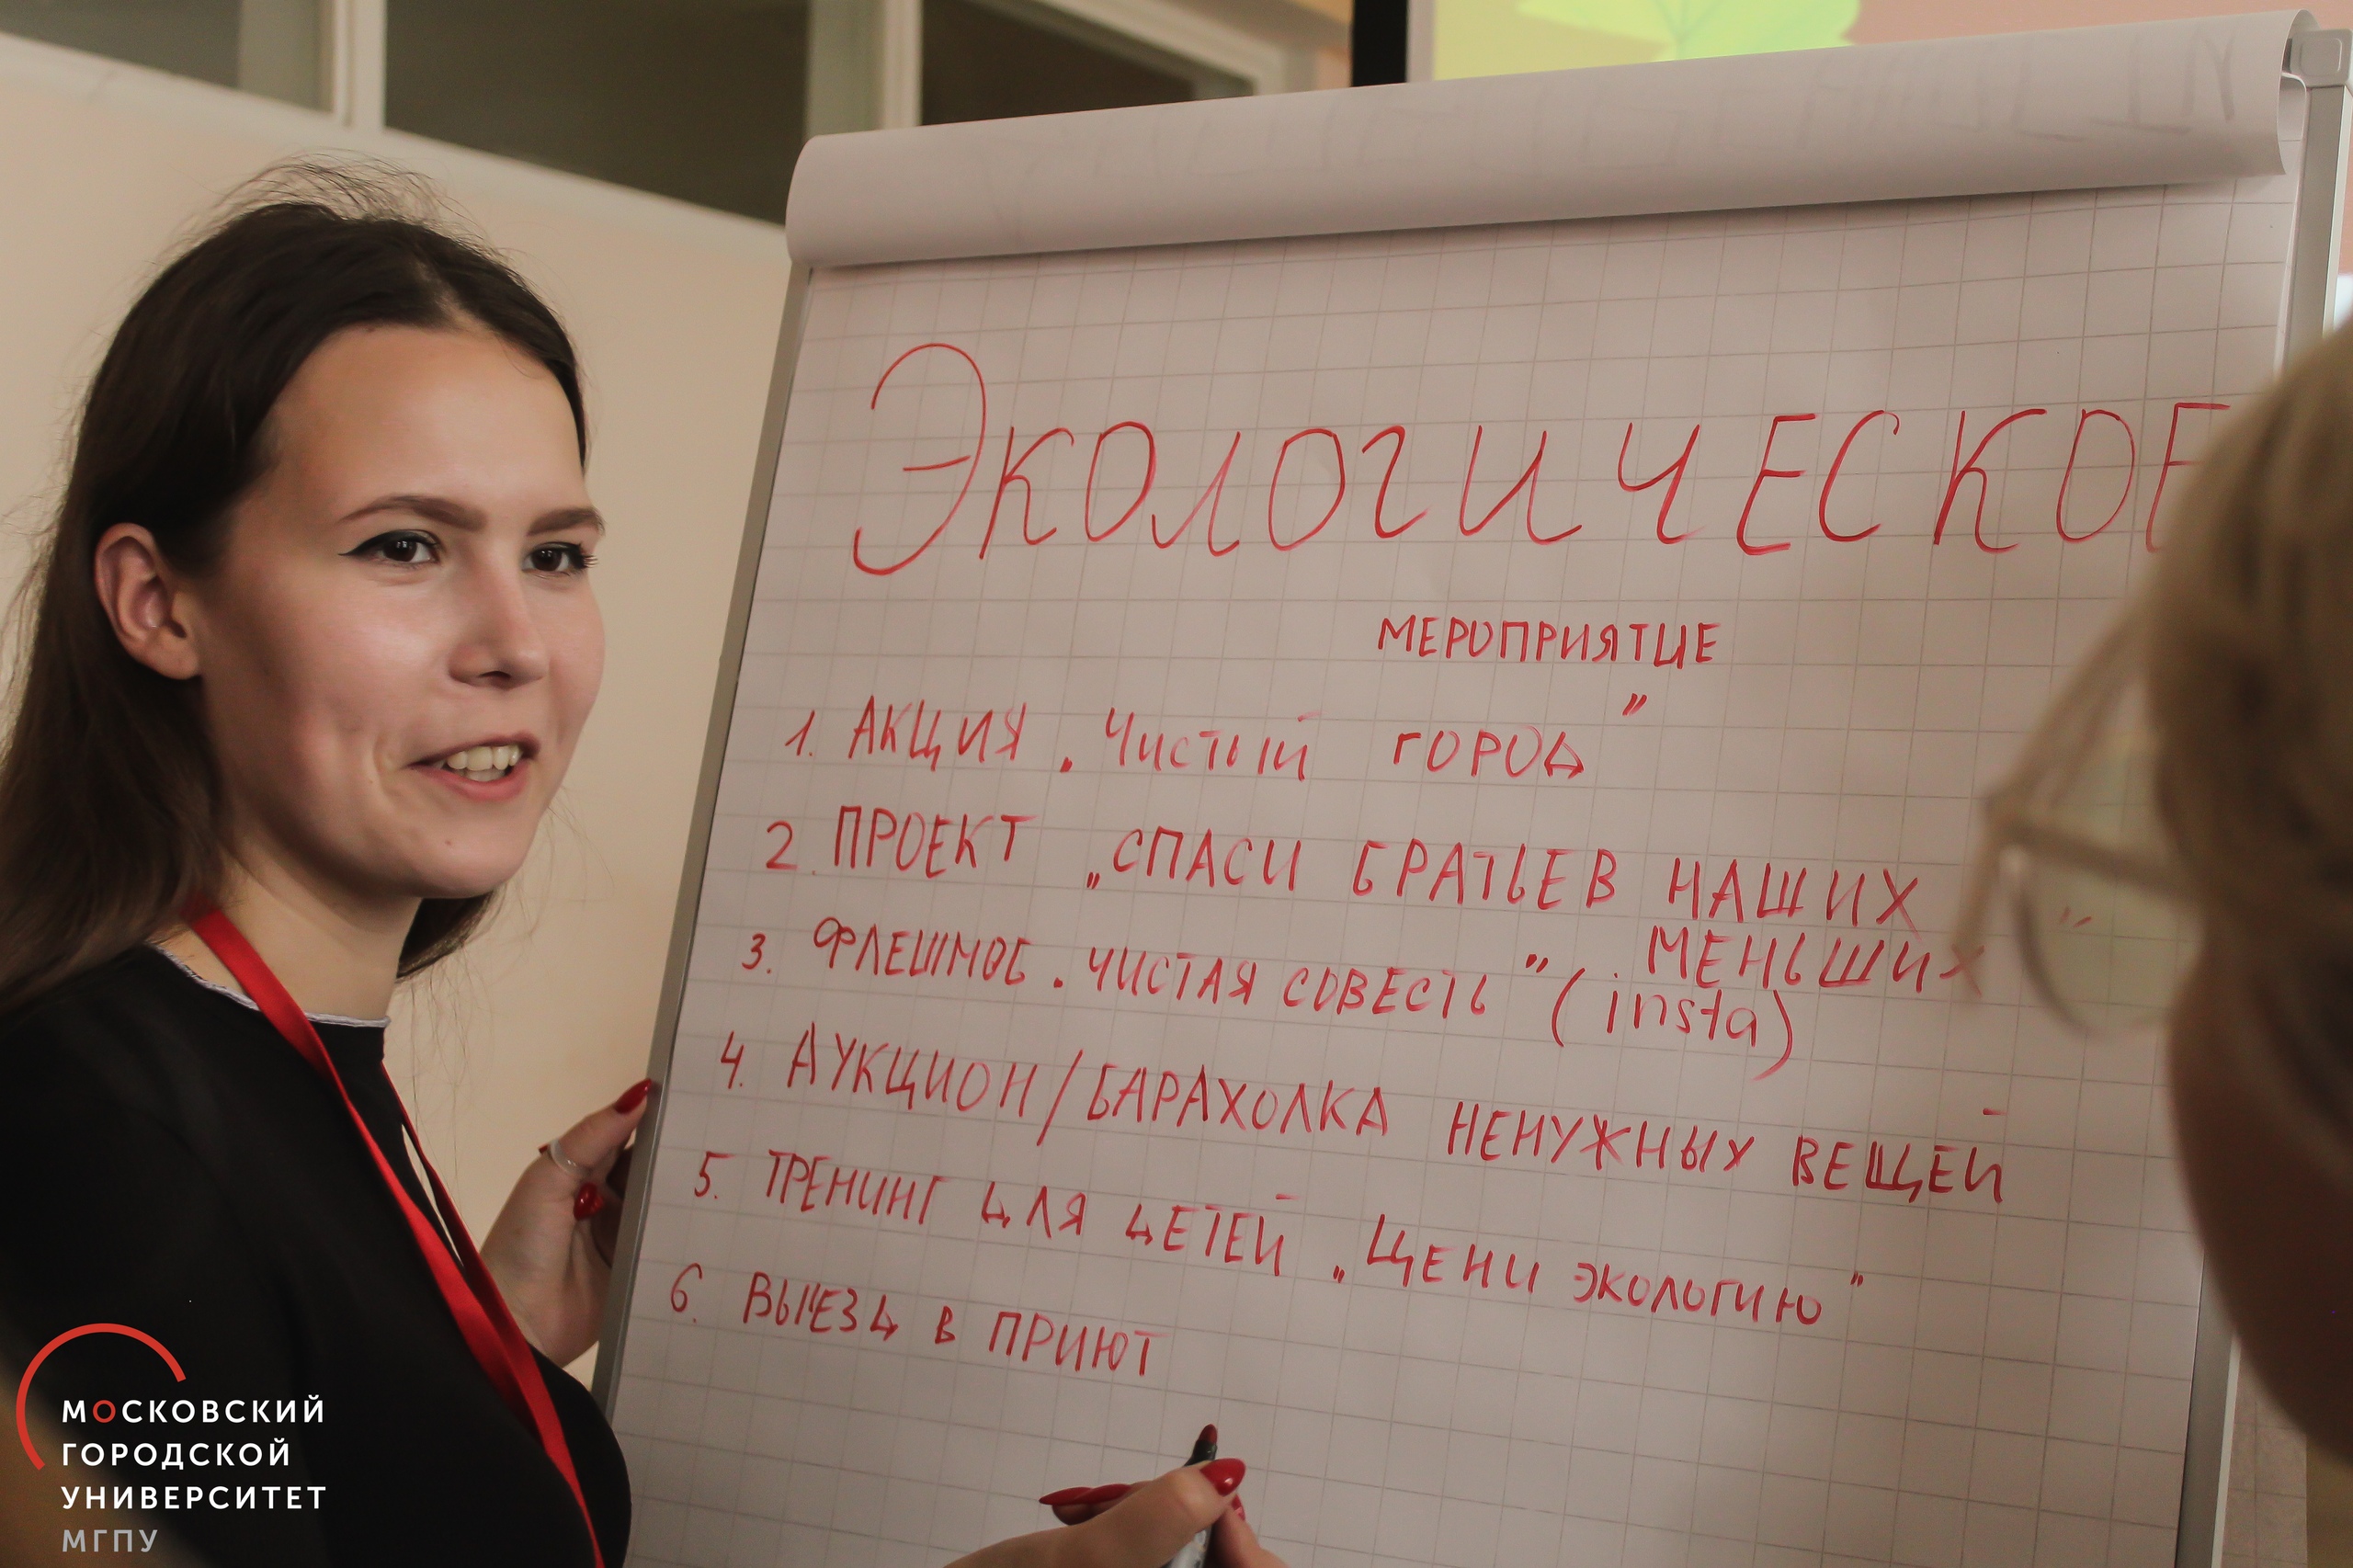 ЭКОЛОГИЧЕСКОЕ
МЕРОПРИЯТИЕ
1. АКЦИЯ „Чистый ГОРОД"
2. ПРОЕКТ „СПАСИ БРАТЬЕВ НАШИХ
МЕНЬШИХ"
3. ФЛЕШМОБ „ЧИСТАЯ СОВЕСТЬ" (insta)
4. АУКЦИОН/БАРАХОЛКА НЕНУЖНЫХ ВЕЩЕЙ
5. ТРЕНИНГ ДЛЯ ДЕТЕЙ „ЦЕНИ ЭКОЛОГИЮ"
6. ВЫЕЗД В ПРИЮТ
МОСКОВСКИЙ
ГОРОДСКОЙ
УНИВЕРСИТЕТ
МГПУ